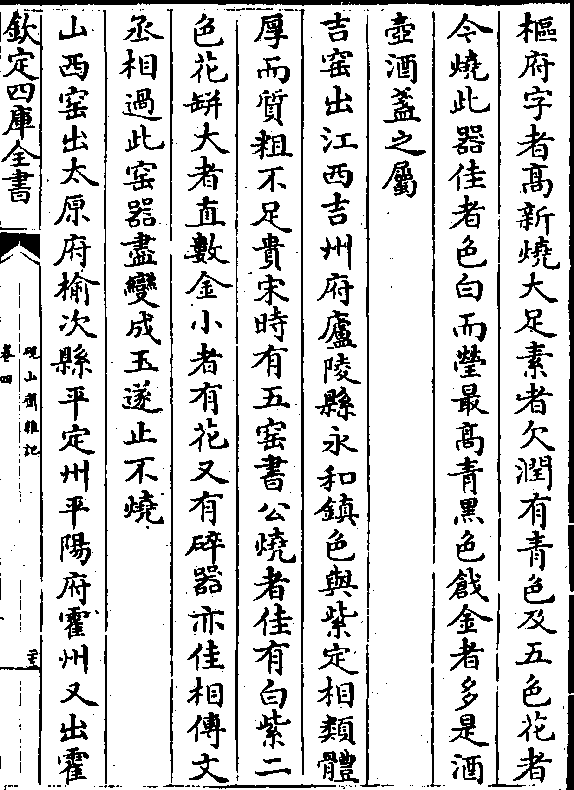 樞府字者髙新燒大足素者欠潤有青色及五色花者
今燒此器佳者色白而瑩最髙青黑色戧金者多是酒
壺酒盞之屬
吉窑出江西吉州府廬陵縣永和鎮色與紫定相類體
厚而質粗不足貴宋時有五窑書公燒者佳有白紫二
色花缾大者直數金小者有花又有碎器亦佳相傳文
丞相過此窑器盡變成玉遂止不燒
山西窑出太原府榆次縣平定州平陽府霍州又出霍
欽定四庫全書
硯山齋雜記
卷四